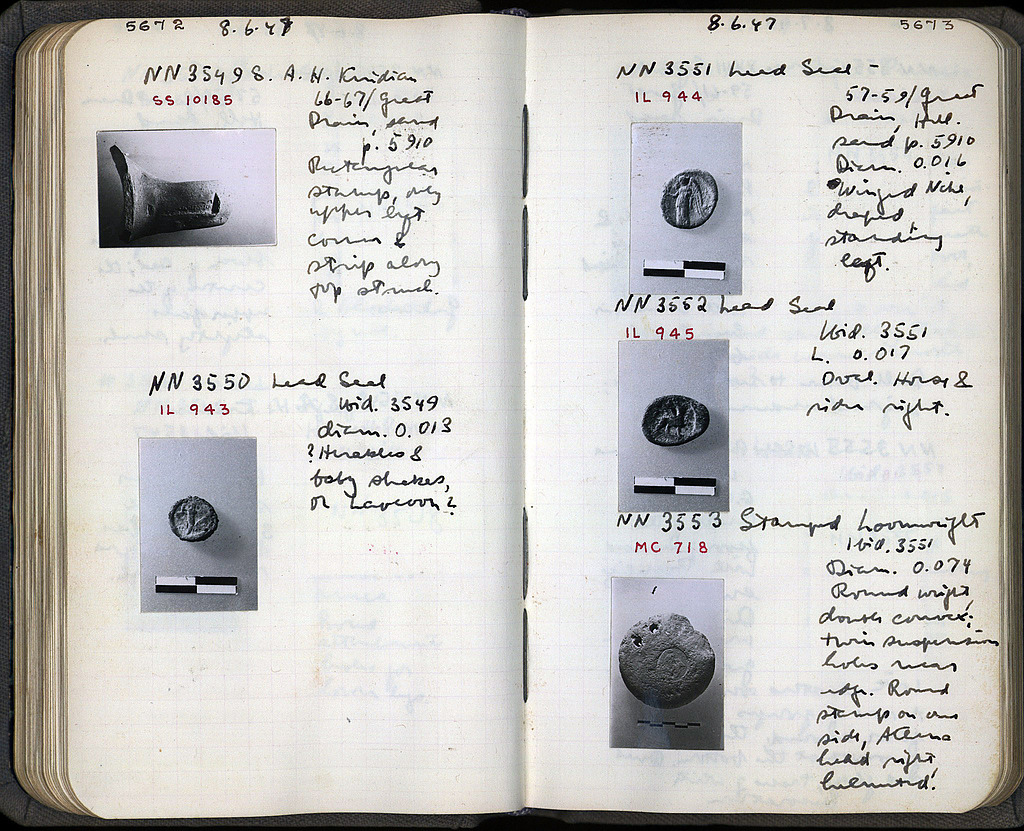 5672 8.6.47
NN 3549 S. A. H. Knidian
SS 10185
66-67/Great
Drain, sand
p. 5910
Rectangular
stamp, only
upper left
corner &
strip along
top struck.
NN 3550 Lead Seal
IL 943
Ibid. 3549
diam. 0.013
? Herakles &
baby snakes,
or Laocoon?
8.6.47 5673
NN 3551 Lead Seal -
IL 944
57-59/Great
Drain, Hell.
sand p. 5910
Diam. 0.016
Winged Nike,
draped,
standing
left.
NN 3552 Lead Seal
IL 945
Ibid. 3551
L. 0.017
Oval. Horse &
rider right.
NN 3553 Stamped Loomweight
MC 718
Ibid. 3551
Diam. 0.074
Round weight,
double convex;
twin suspension
holes near
edge. Round
stamp on one
side, Athena
head right,
helmeted.